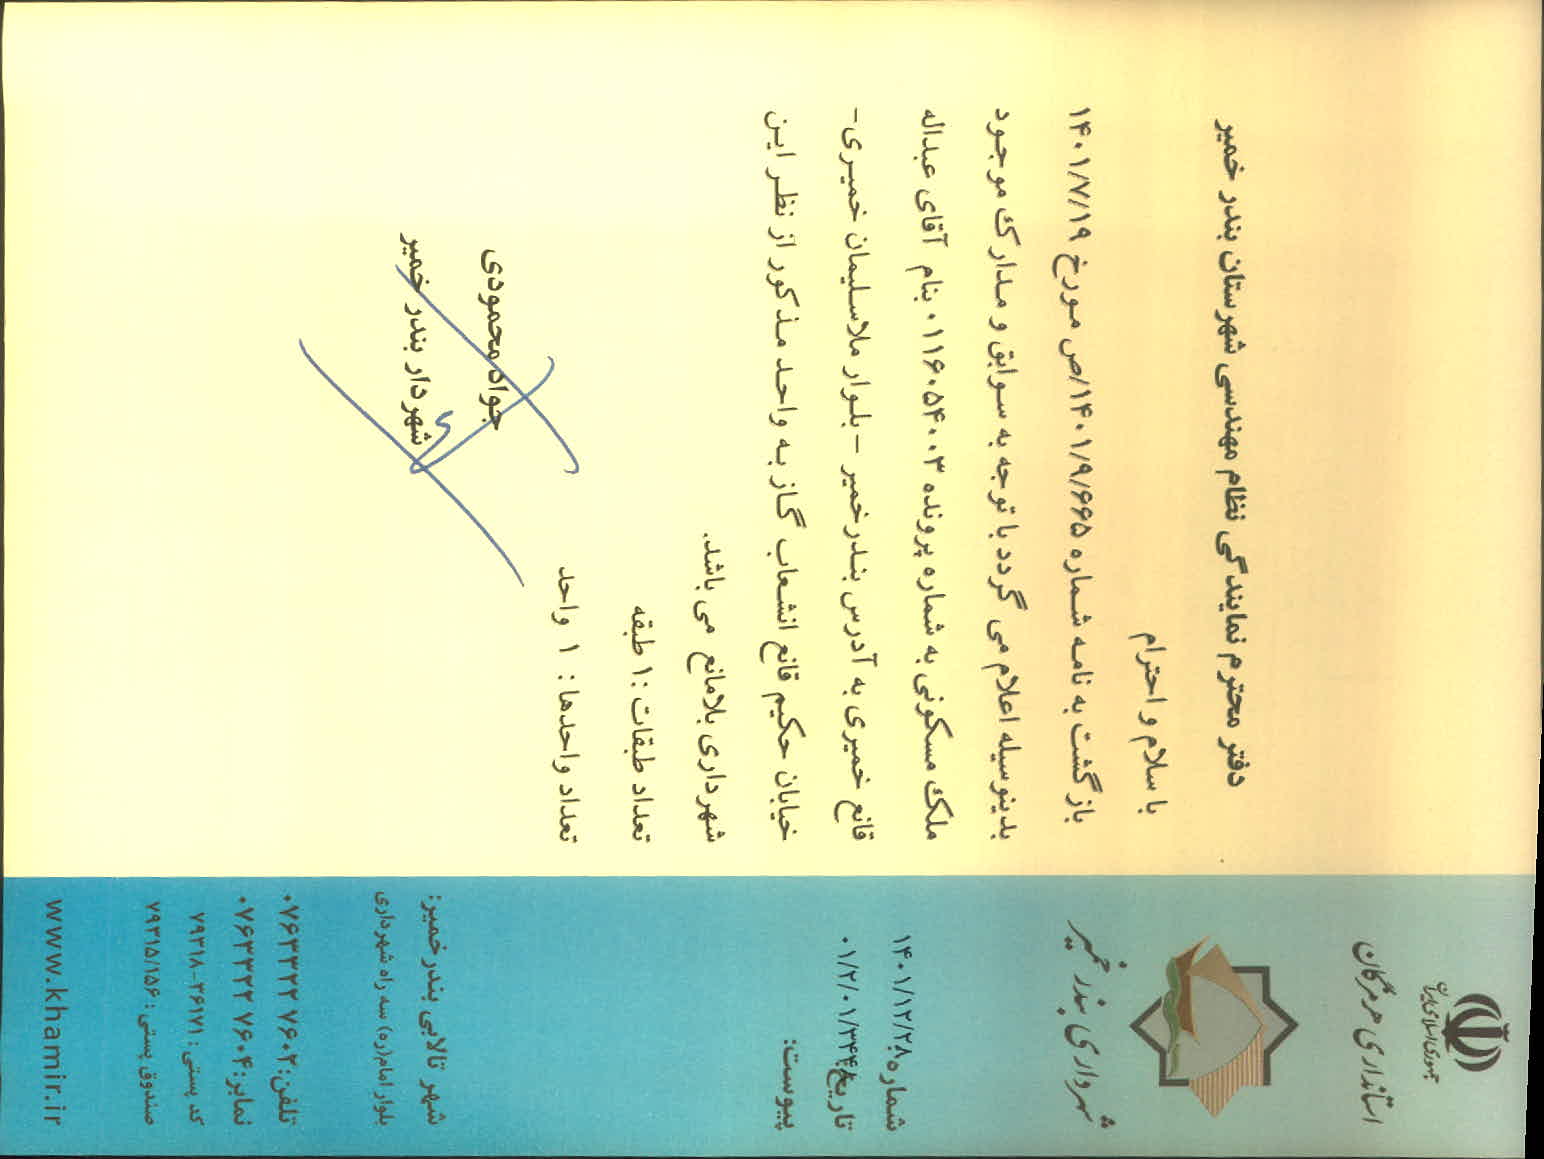 جمهوری اسلامی ایران
استانداری هرمزگان
شهرداری بندر خمیر
شماره ۱۴۰۱/۱۲/۲۸
تاریخ ۰۱/۲/۰۱/۳۴۴۰
پیوست:
دفتر محترم نمایندگی نظام مهندسی شهرستان بندر خمیر
با سلام و احترام
بازگشت به نامه شماره ۱۴۰۱/۹/۶۶۵/ص مورخ ۱۴۰۱/۷/۱۹
بدینوسیله اعلام می گردد با توجه به سوابق و مدارک موجود
ملک مسکونی به شماره پرونده ۰۱۱۶۰۵۴۰۰۳ بنام آقای عبداله
قانع خمیری به آدرس بندرخمیر – بلوار ملاسلیمان خمیری-
خیابان حکیم قانع انشعاب گاز به واحد مذکور از نظر این
شهرداری بلامانع می باشد.
تعداد طبقات :۱ طبقه
تعداد واحدها : ۱ واحد
جواد محمودی
شهردار بندر خمیر
شهر تالابی بندرخمیر:
بلوار امام(ره) سه راه شهرداری
تلفن: ۰۷۶۳۳۲۲۷۶۰۲
نمابر: ۰۷۶۳۳۲۲۷۶۰۴
کد پستی : ۷۹۳۱۸-۲۶۱۷۱
صندوق پستی : ۷۹۳۱۵/۱۵۶
www.khamir.ir